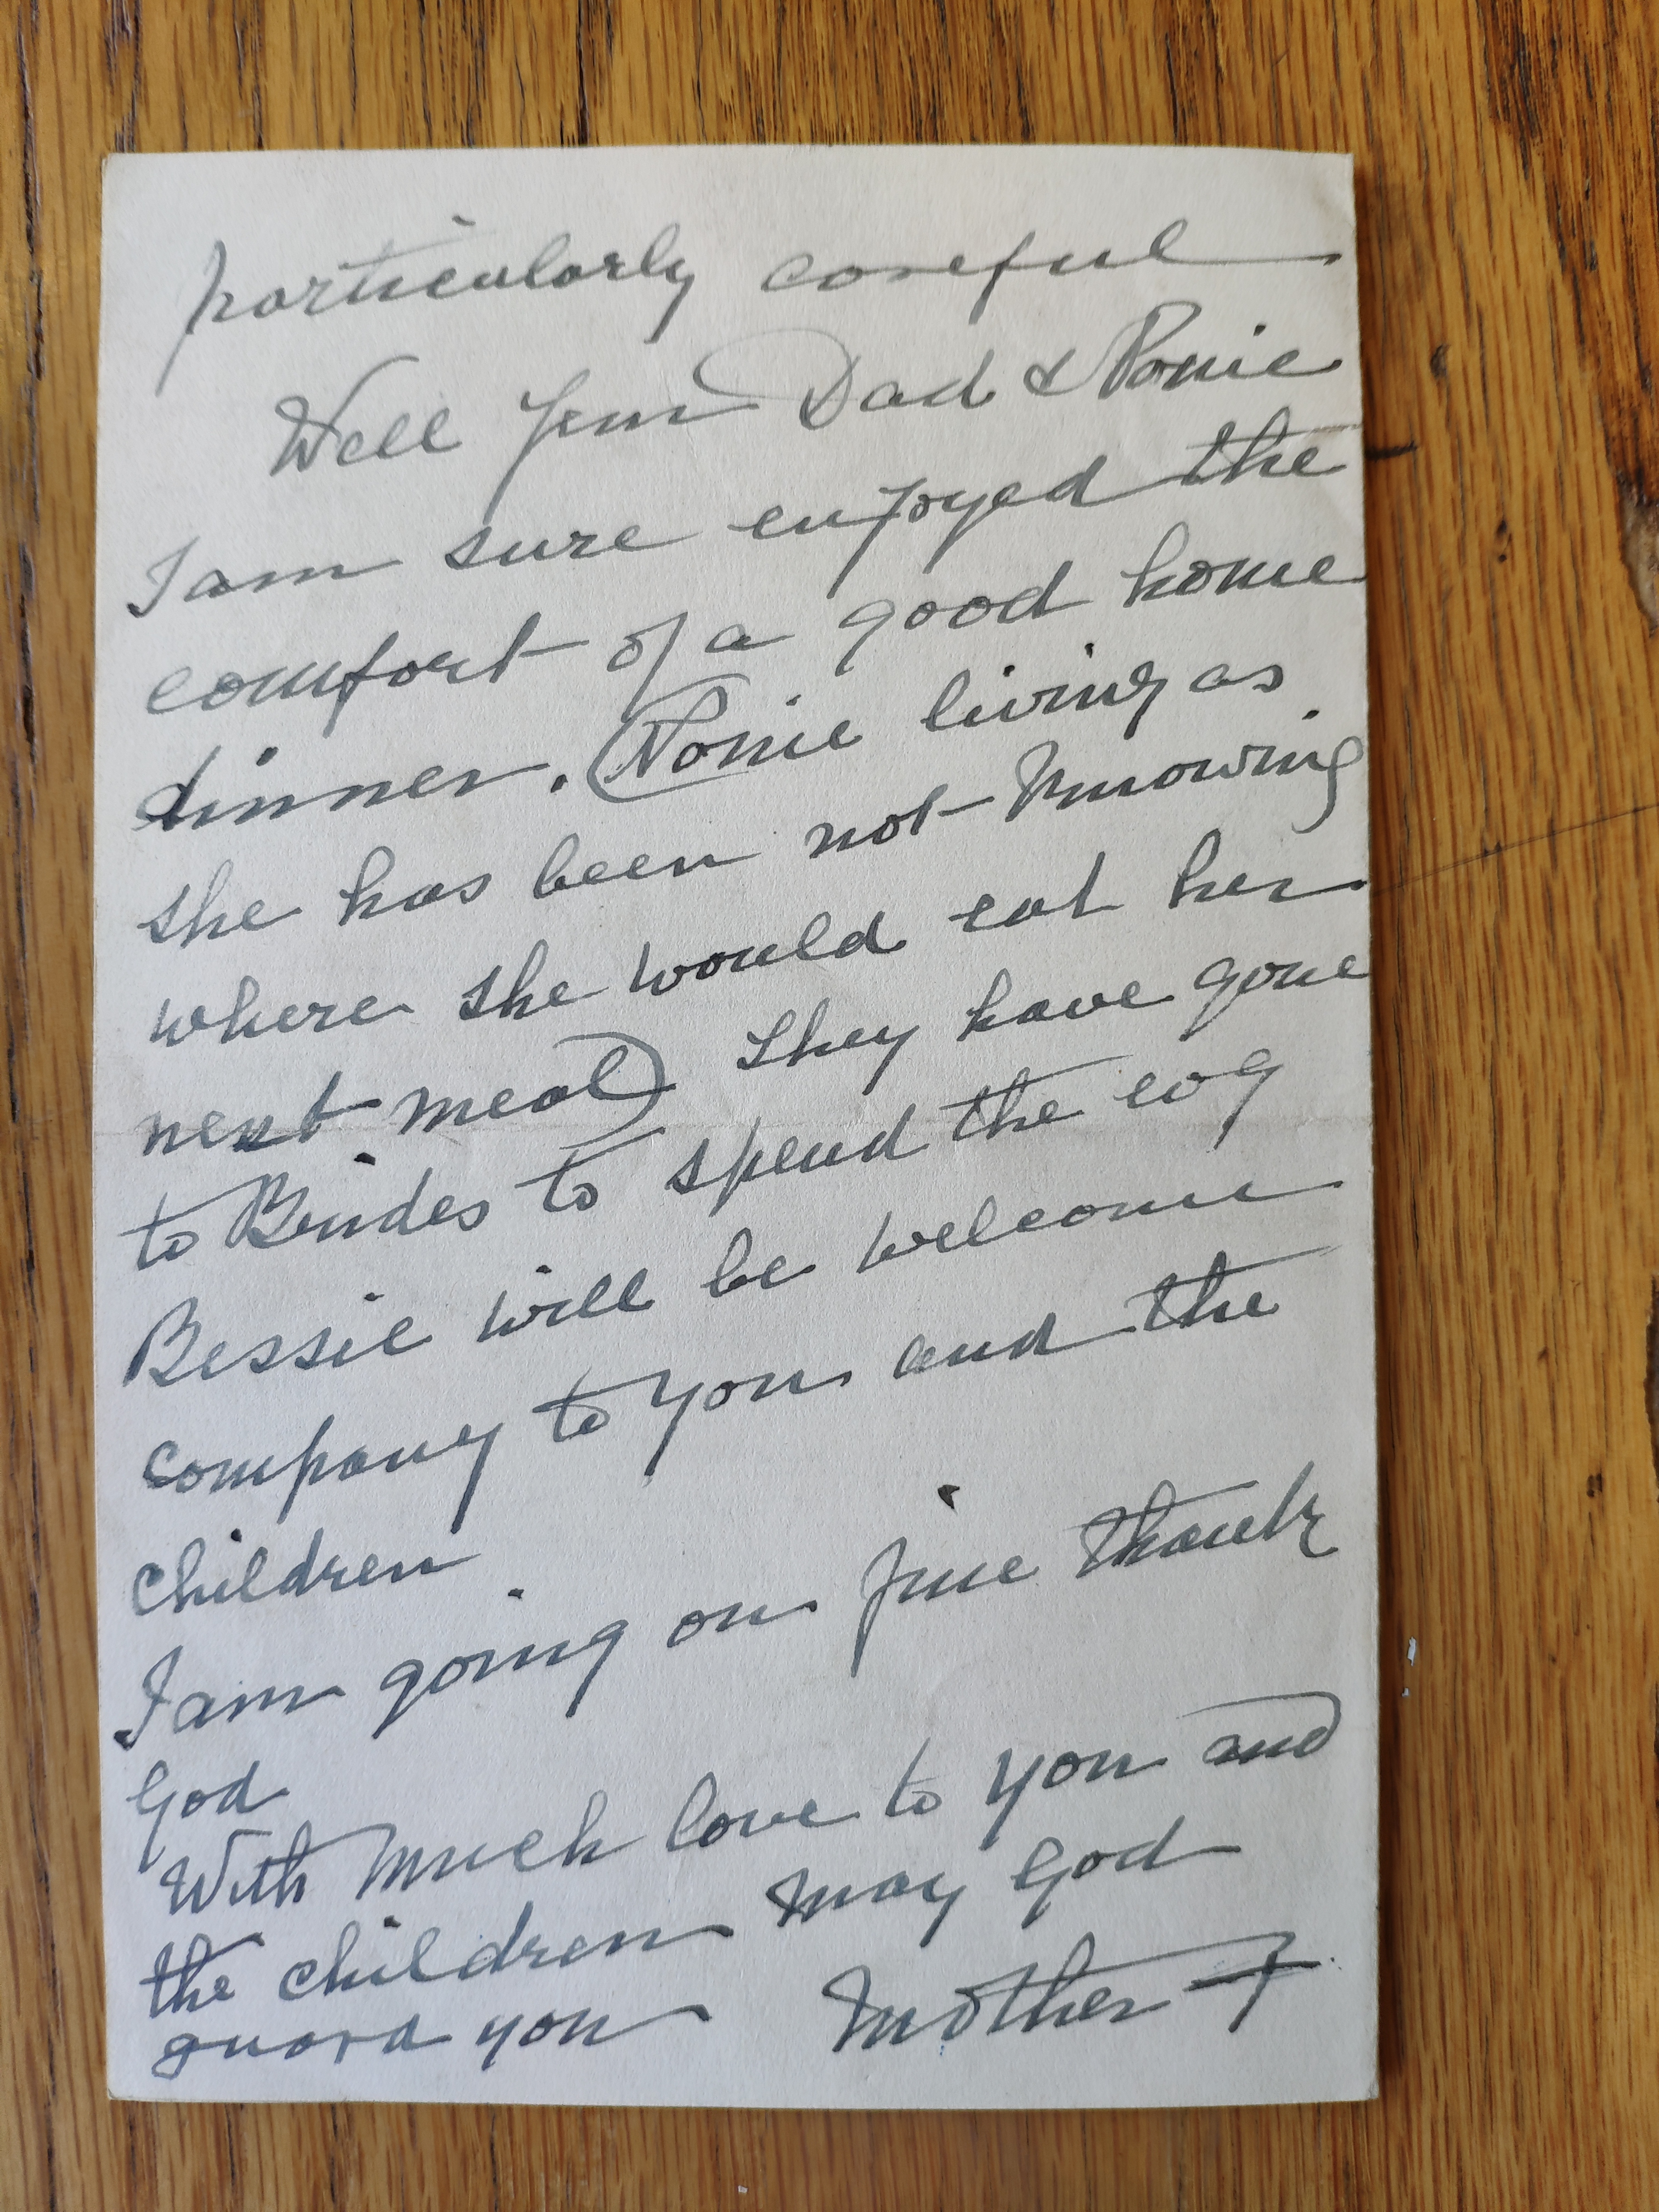 particularly careful
Well Jem Dad & Nonie
I am sure enjoyed the
comfort of a good home
dinner. (Nonie living as
she has been not knowing
where she would eat her
next meal) they have gone
to to spend the evg
Bessie will be welcome
company to you and the
children
I am going on fine thank
God
With much love to you and
the children may God
guard you Mother